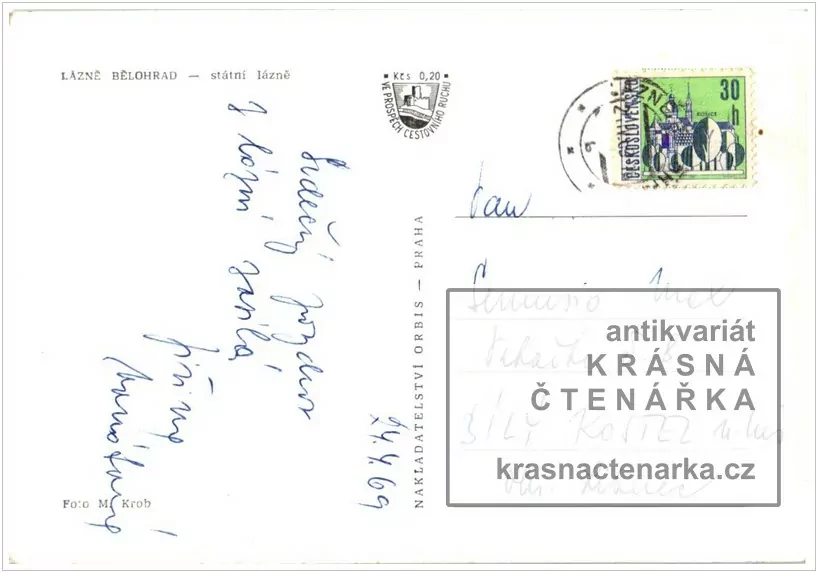 LÁZNĚ BĚLOHRAD — státní lázně
Kčs 0,20
VE PROSPĚCH CESTOVNÍHO RUCHU
ČESKOSLOVENSKO
30
h
KOŠICE
Srdečný pozdrav
z lázní zasílá
Jiřina
24.4.69
Foto M. Krob
NAKLADATELSTVÍ ORBIS — PRAHA
Pan
BÍLÝ KOSTEL n. Nis
antikvariát
KRÁSNÁ
ČTENÁŘKA
krasnactenarka.cz